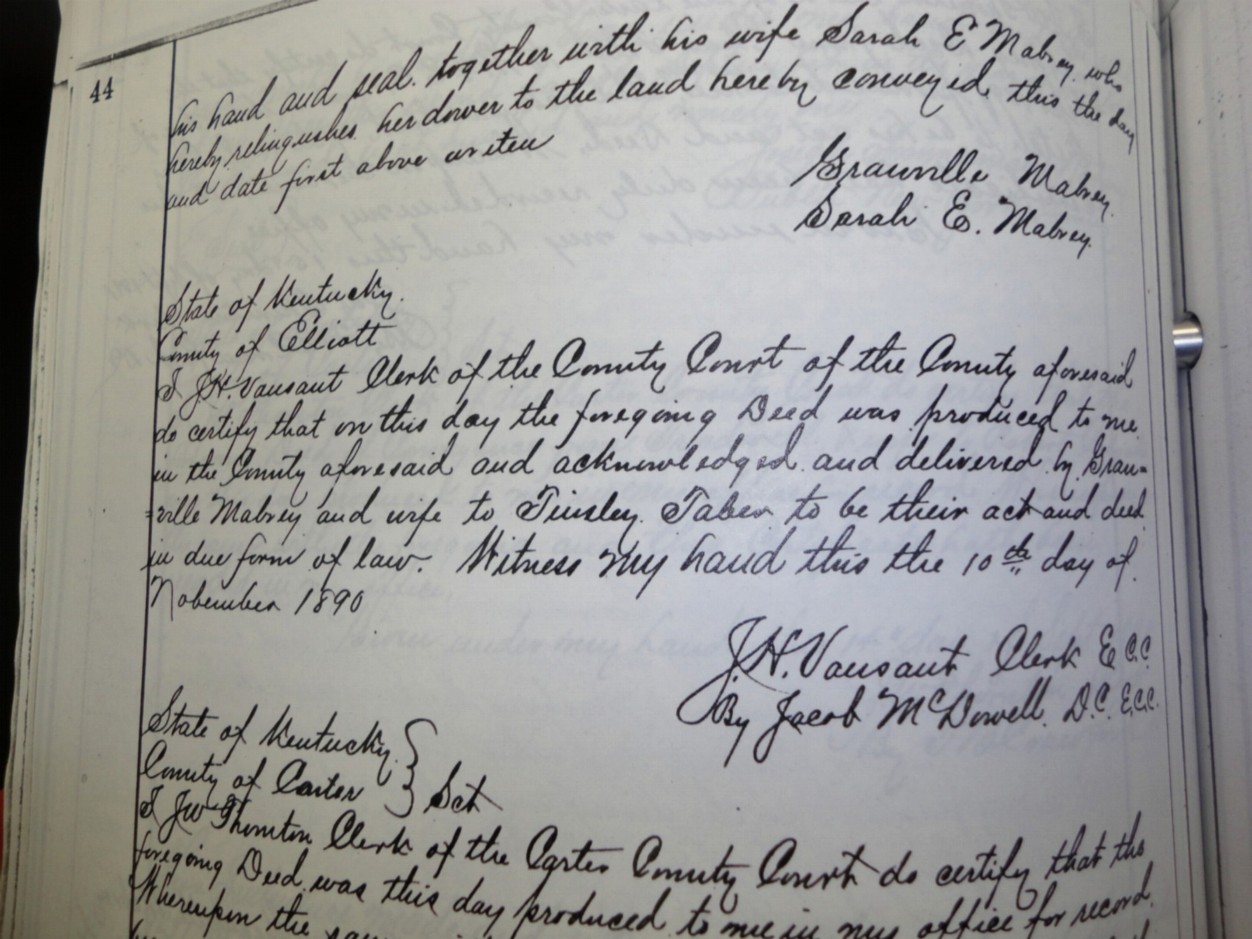 44
his hand and seal. together with his wife Sarah E Mabrey, who
hereby relinguishes her dower to the land hereby conveyed this the day
and date first above writen
Granville Mabrey.
Sarah E. Mabrey.
State of Kentucky.
County of Elliott
I J.H. Vansant Clerk of the County Court of the County aforesaid
do certify that on this day the foregoing Deed was produced to me
in the County aforesaid and acknowledged and delivered by Gran=
=ville Mabrey and wife to Tinsley Taber to be their act and deed
in due form of law. Witness my hand this the 10th day of
Nobember 1890
J.H. Vansant Clerk E.C.C.
By Jacob McDowell D.C. E.C.C.
State of Kentucky
County of Carter } Sct
I Jno Thornton Clerk of the Carter County Court do certify that the
foregoing Deed was this day produced to me in my office for record
Whereupon the